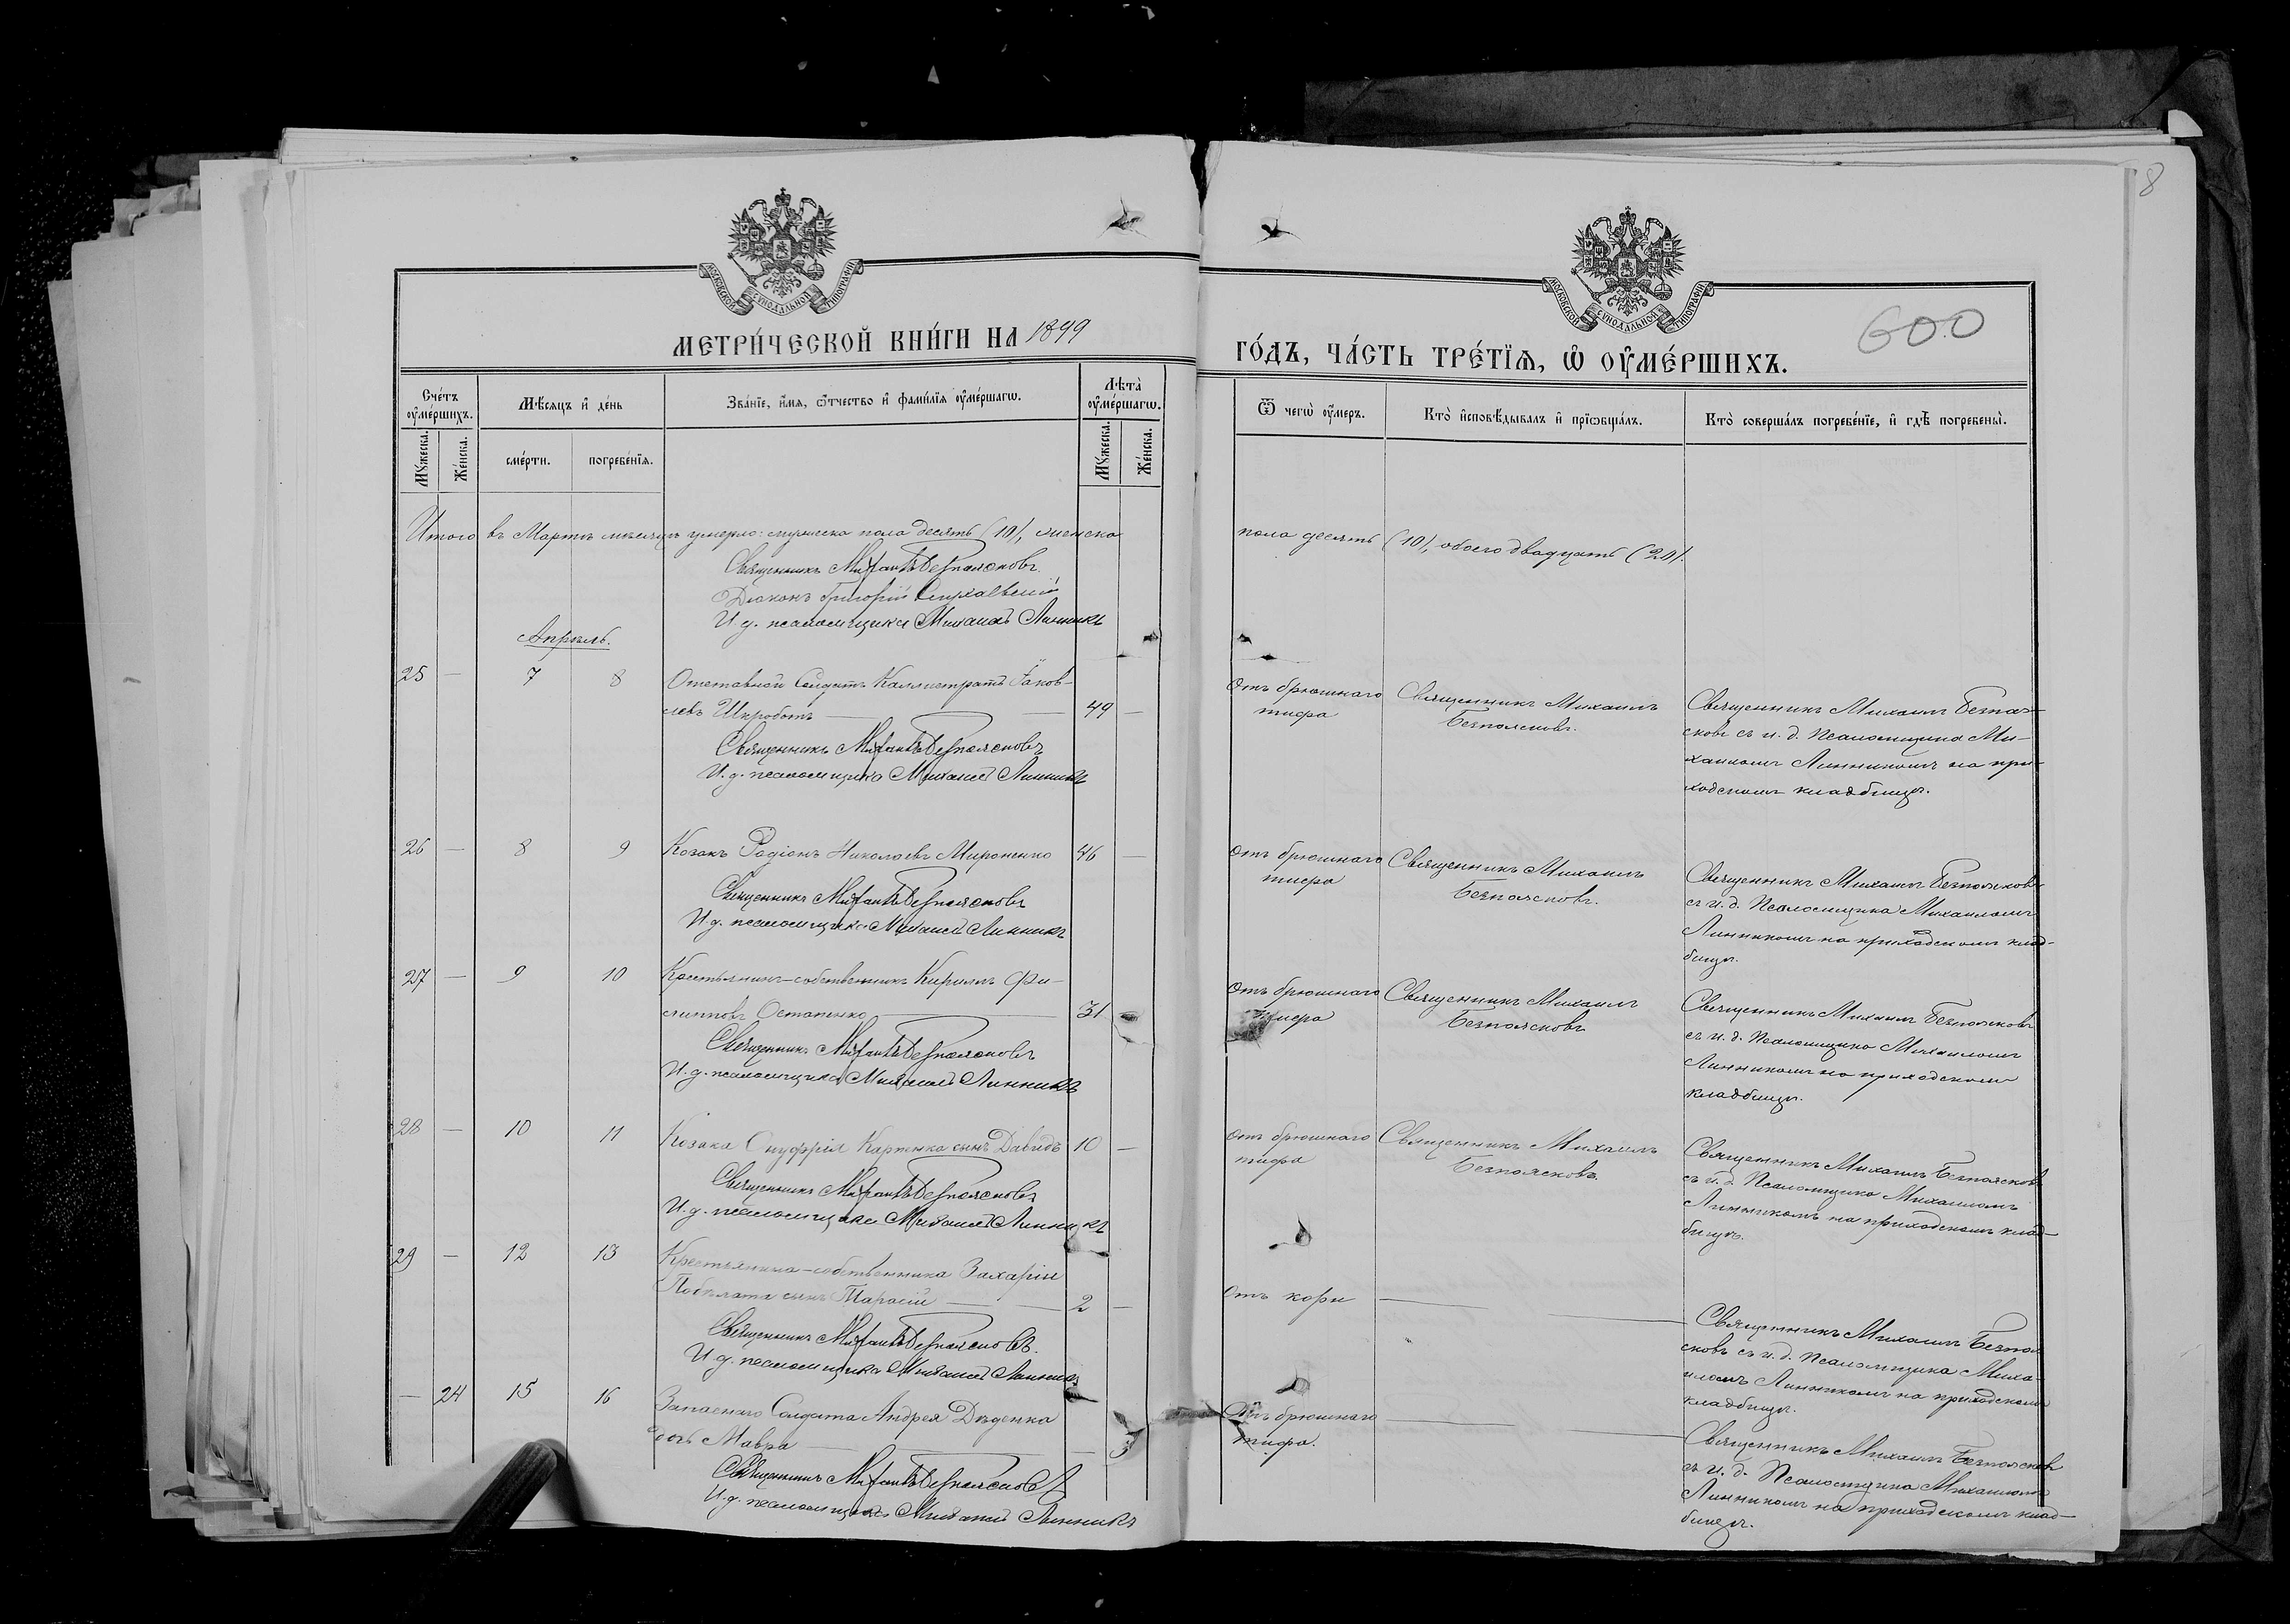 8
МОСКОВСКОЙ СУНОДАЛЬНОЙ ТИПОГРАФІИ
МОСКОВСКОЙ СУНОДАЛЬНОЙ ТИПОГРАФІИ
600
МЕТРИ́ЧЕСКОЙ КНИ́ГИ НА 1899
ГО́ДЪ, ЧА́СТЬ ТРЕ́ТЇѦ, Ѽ ОУ҆МЕ́РШИХЪ.
Сче́тъ оу҆ме́ршихъ.
Мѣ́сѧцъ и҆ де́нь
Зва́нїе, и҆́мѧ, ѻ҆́тчество и҆ фами́лїѧ оу҆ме́ршагѡ.
Лѣ́та оу҆ме́ршагѡ.
Ѿ чегѡ̀ оу҆́меръ.
Кто̀ и҆сповѣ́дывалъ и҆ прїѡбща́лъ.
Кто̀ соверша́лъ погребе́нїе, и҆ гдѣ̀ погребены̀.
Мꙋ́жеска.
Же́нска.
сме́рти.
погребе́нїѧ.
Мꙋ́жеска.
Же́нска.
Итого въ Мартѣ мѣсяцѣ умерло: мужеска пола десять (10), женска
пола десять (10), обоего двадцать (20).
Священникъ Михаилъ Безпоясковъ
Діаконъ Григорій
И д. псаломщика Михаилъ Линникъ
Апрѣль.
25 — 7 8 Отставной Солдатъ Каллистратъ Іаков-
левъ Шкроботъ — 49 —
Священникъ Михаилъ Безпоясковъ
И. д. псаломщика Михаилъ Линникъ
Отъ брюшнаго
тифа
Священникъ Михаилъ
Безпоясковъ.
Священникъ Михаилъ Безпоя-
сковъ съ и. д. Псаломщика Ми-
хаиломъ Линникомъ на при-
ходскомъ кладбищѣ.
26 — 8 9 Козакъ Родіонъ Николаевъ Мироненко 46 —
Священникъ Михаилъ Безпоясковъ
И д. псаломщика Михаилъ Линникъ
Отъ брюшнаго
тифа
Священникъ Михаилъ
Безпоясковъ.
Священникъ Михаилъ Безпоясковъ
съ и. д. Псаломщика Михаиломъ
Линникомъ на приходскомъ клад-
бищѣ.
27 — 9 10 Крестьянинъ-собственникъ Кириллъ Фи-
липповъ Остапенко — 31 —
Священникъ Михаилъ Безпоясковъ
И. д. псаломщика Михаилъ Линникъ
Отъ брюшнаго
тифа
Священникъ Михаилъ
Безпоясковъ
Священникъ Михаилъ Безпоясковъ
съ и. д. Псаломщика Михаиломъ
Линникомъ на приходскомъ
кладбищѣ.
28 — 10 11 Козака Онуфрія Карпенка сынъ Давидъ 10 —
Священникъ Михаилъ Безпоясковъ
И. д. псаломщика Михаилъ Линникъ
Отъ брюшнаго
тифа
Священникъ Михаилъ
Безпоясковъ.
Священникъ Михаилъ Безпоясковъ
съ и. д. Псаломщика Михаиломъ
Линникомъ на приходскомъ клад-
бищѣ.
29 — 12 13 Крестьянина-собственника Захаріи
сынъ Тарасій — 2 —
Священникъ Михаилъ Безпоясковъ.
И д. псаломщика Михаилъ Линникъ
Отъ кори —
Священникъ Михаилъ Безпоя
сковъ съ и. д. Псаломщика Миха-
иломъ Линникомъ на приходскомъ
кладбищѣ.
— 24 15 16 Запаснаго Солдата Андрея Дѣденка
дочь Мавра —
Священникъ Михаилъ Безпоясковъ
И. д. псаломщика Михаилъ Линникъ
Отъ брюшнаго
тифа.
Священникъ Михаилъ Безпоясковъ
съ и. д. Псаломщика Михаиломъ
Линникомъ на приходскомъ клад-
бищѣ.